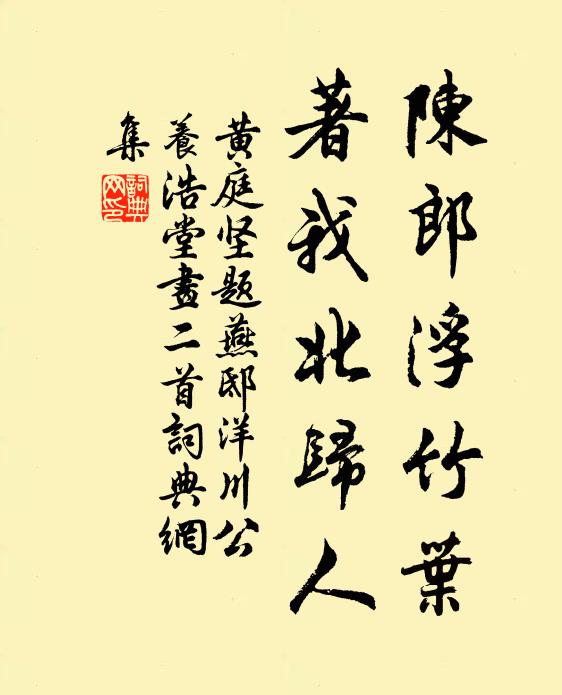 陳郎浮竹葉
著我北歸人
黄庭坚題燕邸洋川公
養浩堂畫二首詞典網
集
詞典
网印